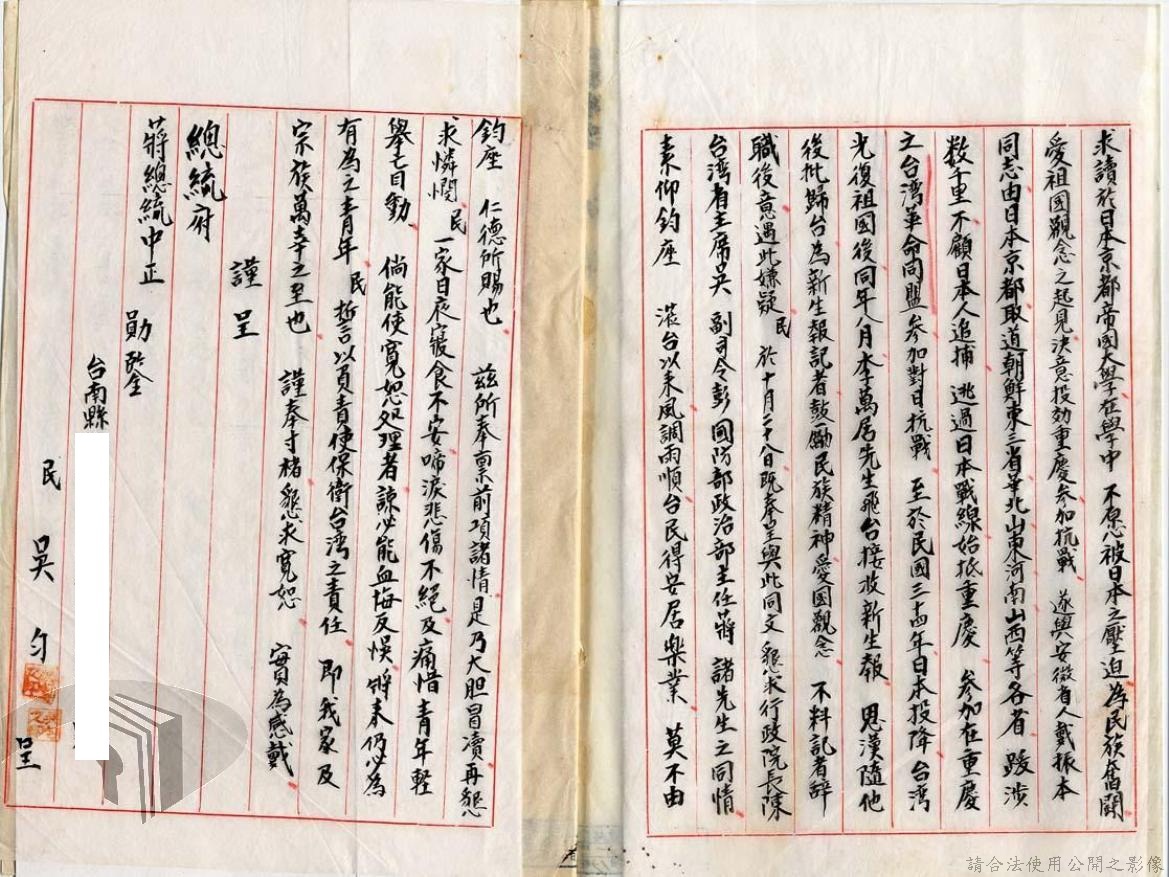 求讀於日本京都帝國大學在學中 不愿被日本之壓迫為民族奮鬪
愛祖國觀念之起見決意投効重慶參加抗戰 遂與安徽省人戴振本
同志由日本京都取道朝鮮東三省華北山東河南山西等各省 跋涉
数千里不顧日本人追捕 逃過日本戰線始抵重慶 參加在重慶
之台湾革命同盟參加對日抗戰 至於民國三十四年日本投降台湾
光復祖國後同年八月李萬居先生飛台接收新生報 思漢隨他
後批歸台為新生報記者鼓勵民族精神愛國觀念 不料記者辞
職後意遇此嫌疑 民 於十月二十八日既奉呈與此同文懇求行政院長陳
台湾省主席吳 副司令彭 國防部政治部主任蔣 諸先生之同情
素仰鈞座 蒞台以来風調雨順台民得安居楽業 莫不由
鈞座 仁德所賜也 茲所奉禀前項諸情是乃大胆冒瀆再懇
求憐憫 民 一家日夜寢食不安啼淚悲傷不絕及痛惜青年輕
舉妄動 倘能使寬恕処理者諒必能血悔反悞將来仍必為
有為之青年 民 誓言以負責使保衛台湾之責任 即我家及
宗族萬幸之至也 謹奉寸楮懇求寬恕 實為感戴
謹呈
總統府
蔣總統中正 勛鑒
台南縣
民 吳勻 呈
請合法使用公開之影像